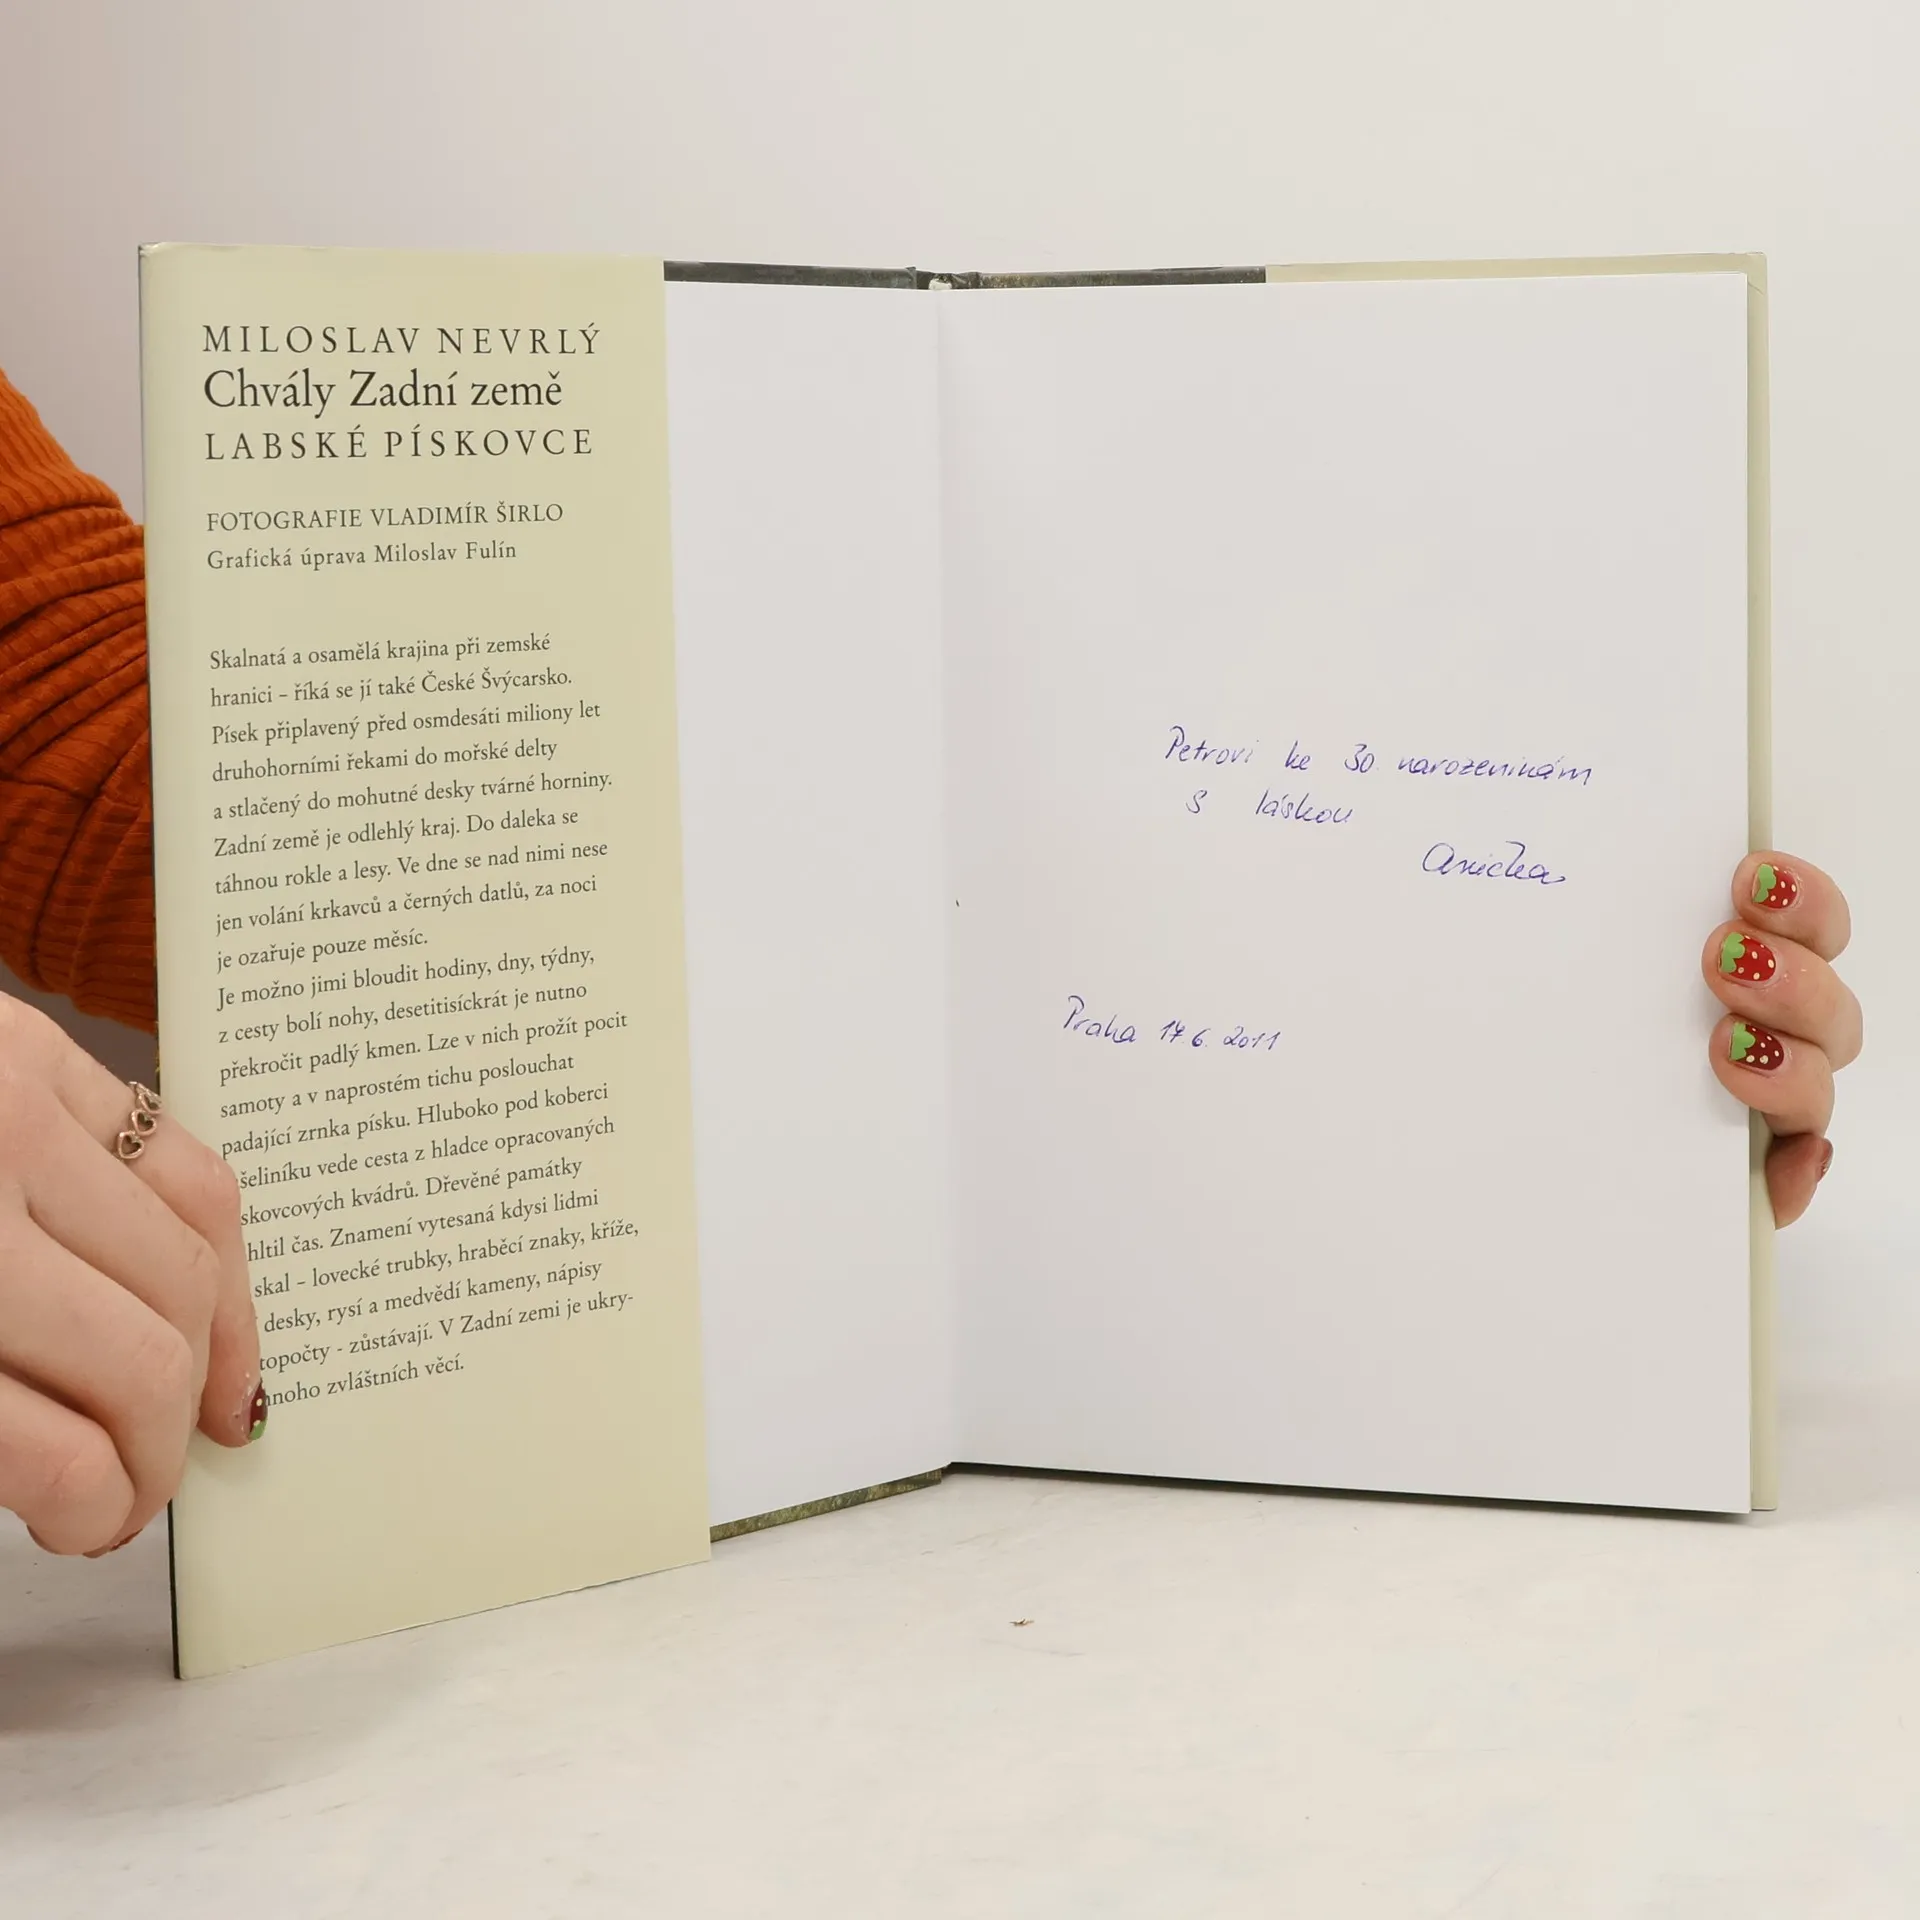 MILOSLAV NEVRLÝ
Chvály Zadní země
LABSKÉ PÍSKOVCE
FOTOGRAFIE VLADIMÍR ŠIRLO
Grafická úprava Miloslav Fulín
Skalnatá a osamělá krajina při zemské
hranici – říká se jí také České Švýcarsko.
Písek připlavený před osmdesáti miliony let
druhohorními řekami do mořské delty
a stlačený do mohutné desky tvárné horniny.
Zadní země je odlehlý kraj. Do daleka se
táhnou rokle a lesy. Ve dne se nad nimi nese
jen volání krkavců a černých datlů, za noci
je ozařuje pouze měsíc.
Je možno jimi bloudit hodiny, dny, týdny,
z cesty bolí nohy, desetitisíckrát je nutno
překročit padlý kmen. Lze v nich prožít pocit
samoty a v naprostém tichu poslouchat
padající zrnka písku. Hluboko pod koberci
šeliníku vede cesta z hladce opracovaných
skovcových kvádrů. Dřevěné památky
hltil čas. Znamení vytesaná kdysi lidmi
skal – lovecké trubky, hraběcí znaky, kříže,
desky, rysí a medvědí kameny, nápisy
topočty - zůstávají. V Zadní zemi je ukry-
mnoho zvláštních věcí.
Petrovi ke 30. narozeninám
s láskou
Anička
Praha 17. 6. 2011